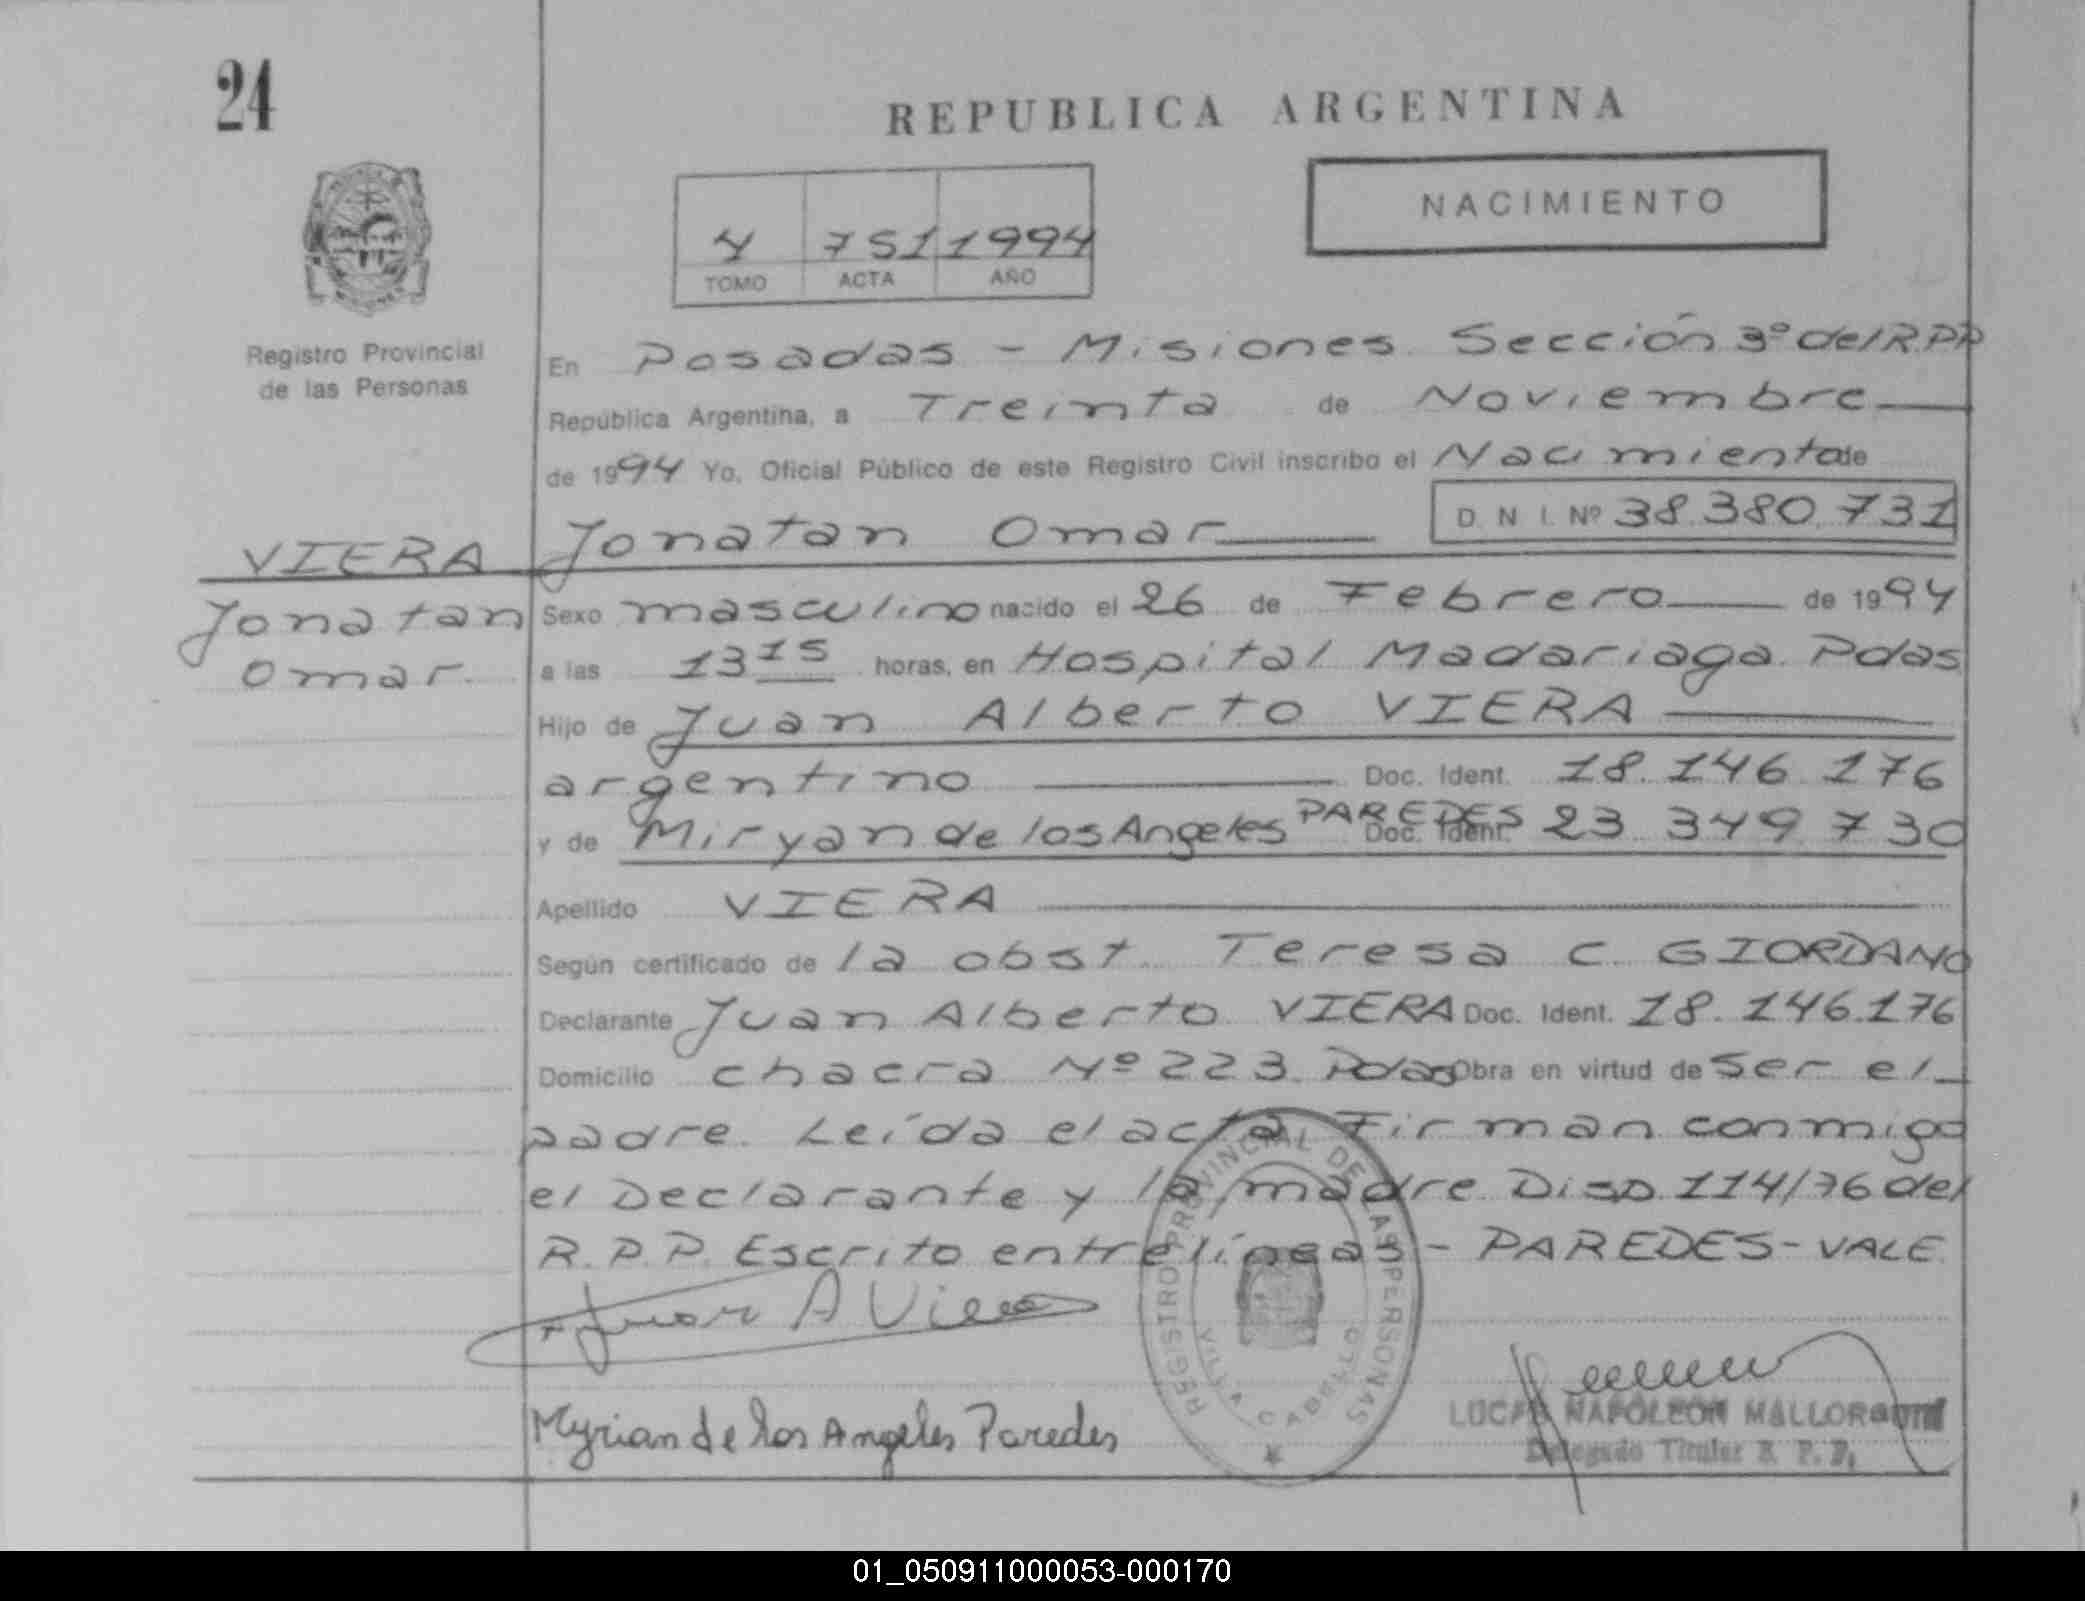 24
REPUBLICA ARGENTINA
NACIMIENTO
4 751 1994
TOMO ACTA AÑO
Registro Provincial
de las Personas
En Posadas - Misiones Sección 3º del R.P.P
República Argentina, a Treinta de Noviembre
de 1994 Yo, Oficial Público de este Registro Civil inscribo el Nacimiento de
VIERA Jonatan Omar D. N. I. Nº 38.380.731
Jonatan
Omar.
Sexo masculino nacido el 26 de Febrero de 1994
a las 13 15 horas, en Hospital Madariaga. Pdas
Hijo de Juan Alberto VIERA
argentino Doc. Ident. 18.146.176
y de Miryan de los Angeles PAREDES Doc. Ident. 23 349 730
Apellido VIERA
Según certificado de la obst. Teresa C. GIORDANO
Declarante Juan Alberto VIERA Doc. Ident. 18.146.176
Domicilio chacra Nº 223 Pdas Obra en virtud de ser el
padre. Leída el acta Firman conmigo
el Declarante y la madre. Disp. 114/76 del
R.P.P. Escrito entre líneas - PAREDES - VALE.
Juan A Viera
Myrian de los Angeles Paredes
REGISTRO PROVINCIAL DE LAS PERSONAS
VILLA CABELLO
LUCAS NAPOLEON
Delegado Titular R. P. P.
01_050911000053-000170